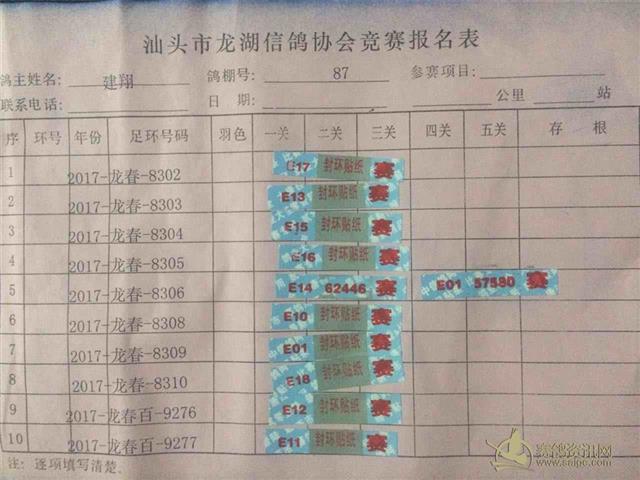 汕头市龙湖信鸽协会竞赛报名表
鸽主姓名: 建翔 鸽棚号: 87 参赛项目:
联系电话: 日 期: 公里 站
序 环号 年份 足环号码 羽色 一关 二关 三关 四关 五关 存 根
1 2017-龙春-8302 E17 封环贴纸 赛
2 2017-龙春-8303 E13 封环贴纸 赛
3 2017-龙春-8304 E15 封环贴纸 赛
4 2017-龙春-8305 E16 封环贴纸 赛
5 2017-龙春-8306 E14 62446 赛 E01 57580 赛
6 2017-龙春-8308 E10 封环贴纸 赛
7 2017-龙春-8309 E01 封环贴纸 赛
8 2017-龙春-8310 E18 封环贴纸 赛
9 2017-龙春百-9276 E12 封环贴纸 赛
10 2017-龙春百-9277 E11 封环贴纸 赛
注: 逐项填写清楚.
赛鸽资讯网
www.saipc.com